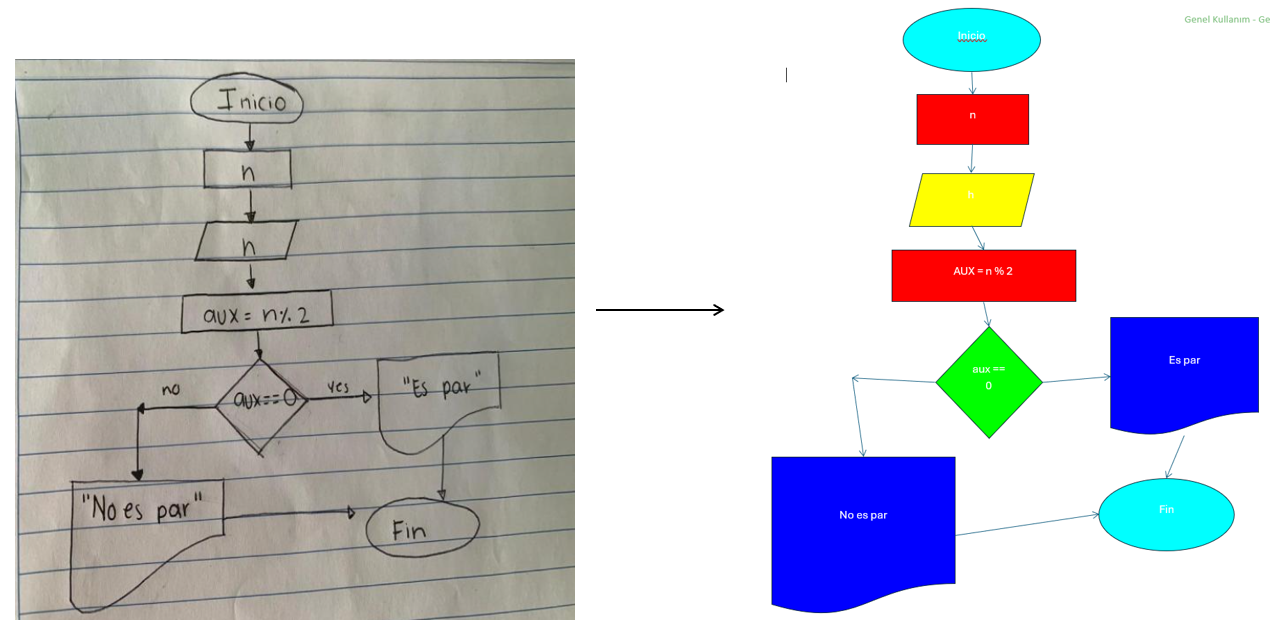 Inicio
n
n
aux = n % 2
aux==0
no
yes
"Es par"
"No es par"
Fin
Genel Kullanım - Ge
Inicio
n
n
AUX = n % 2
aux ==
0
Es par
No es par
Fin